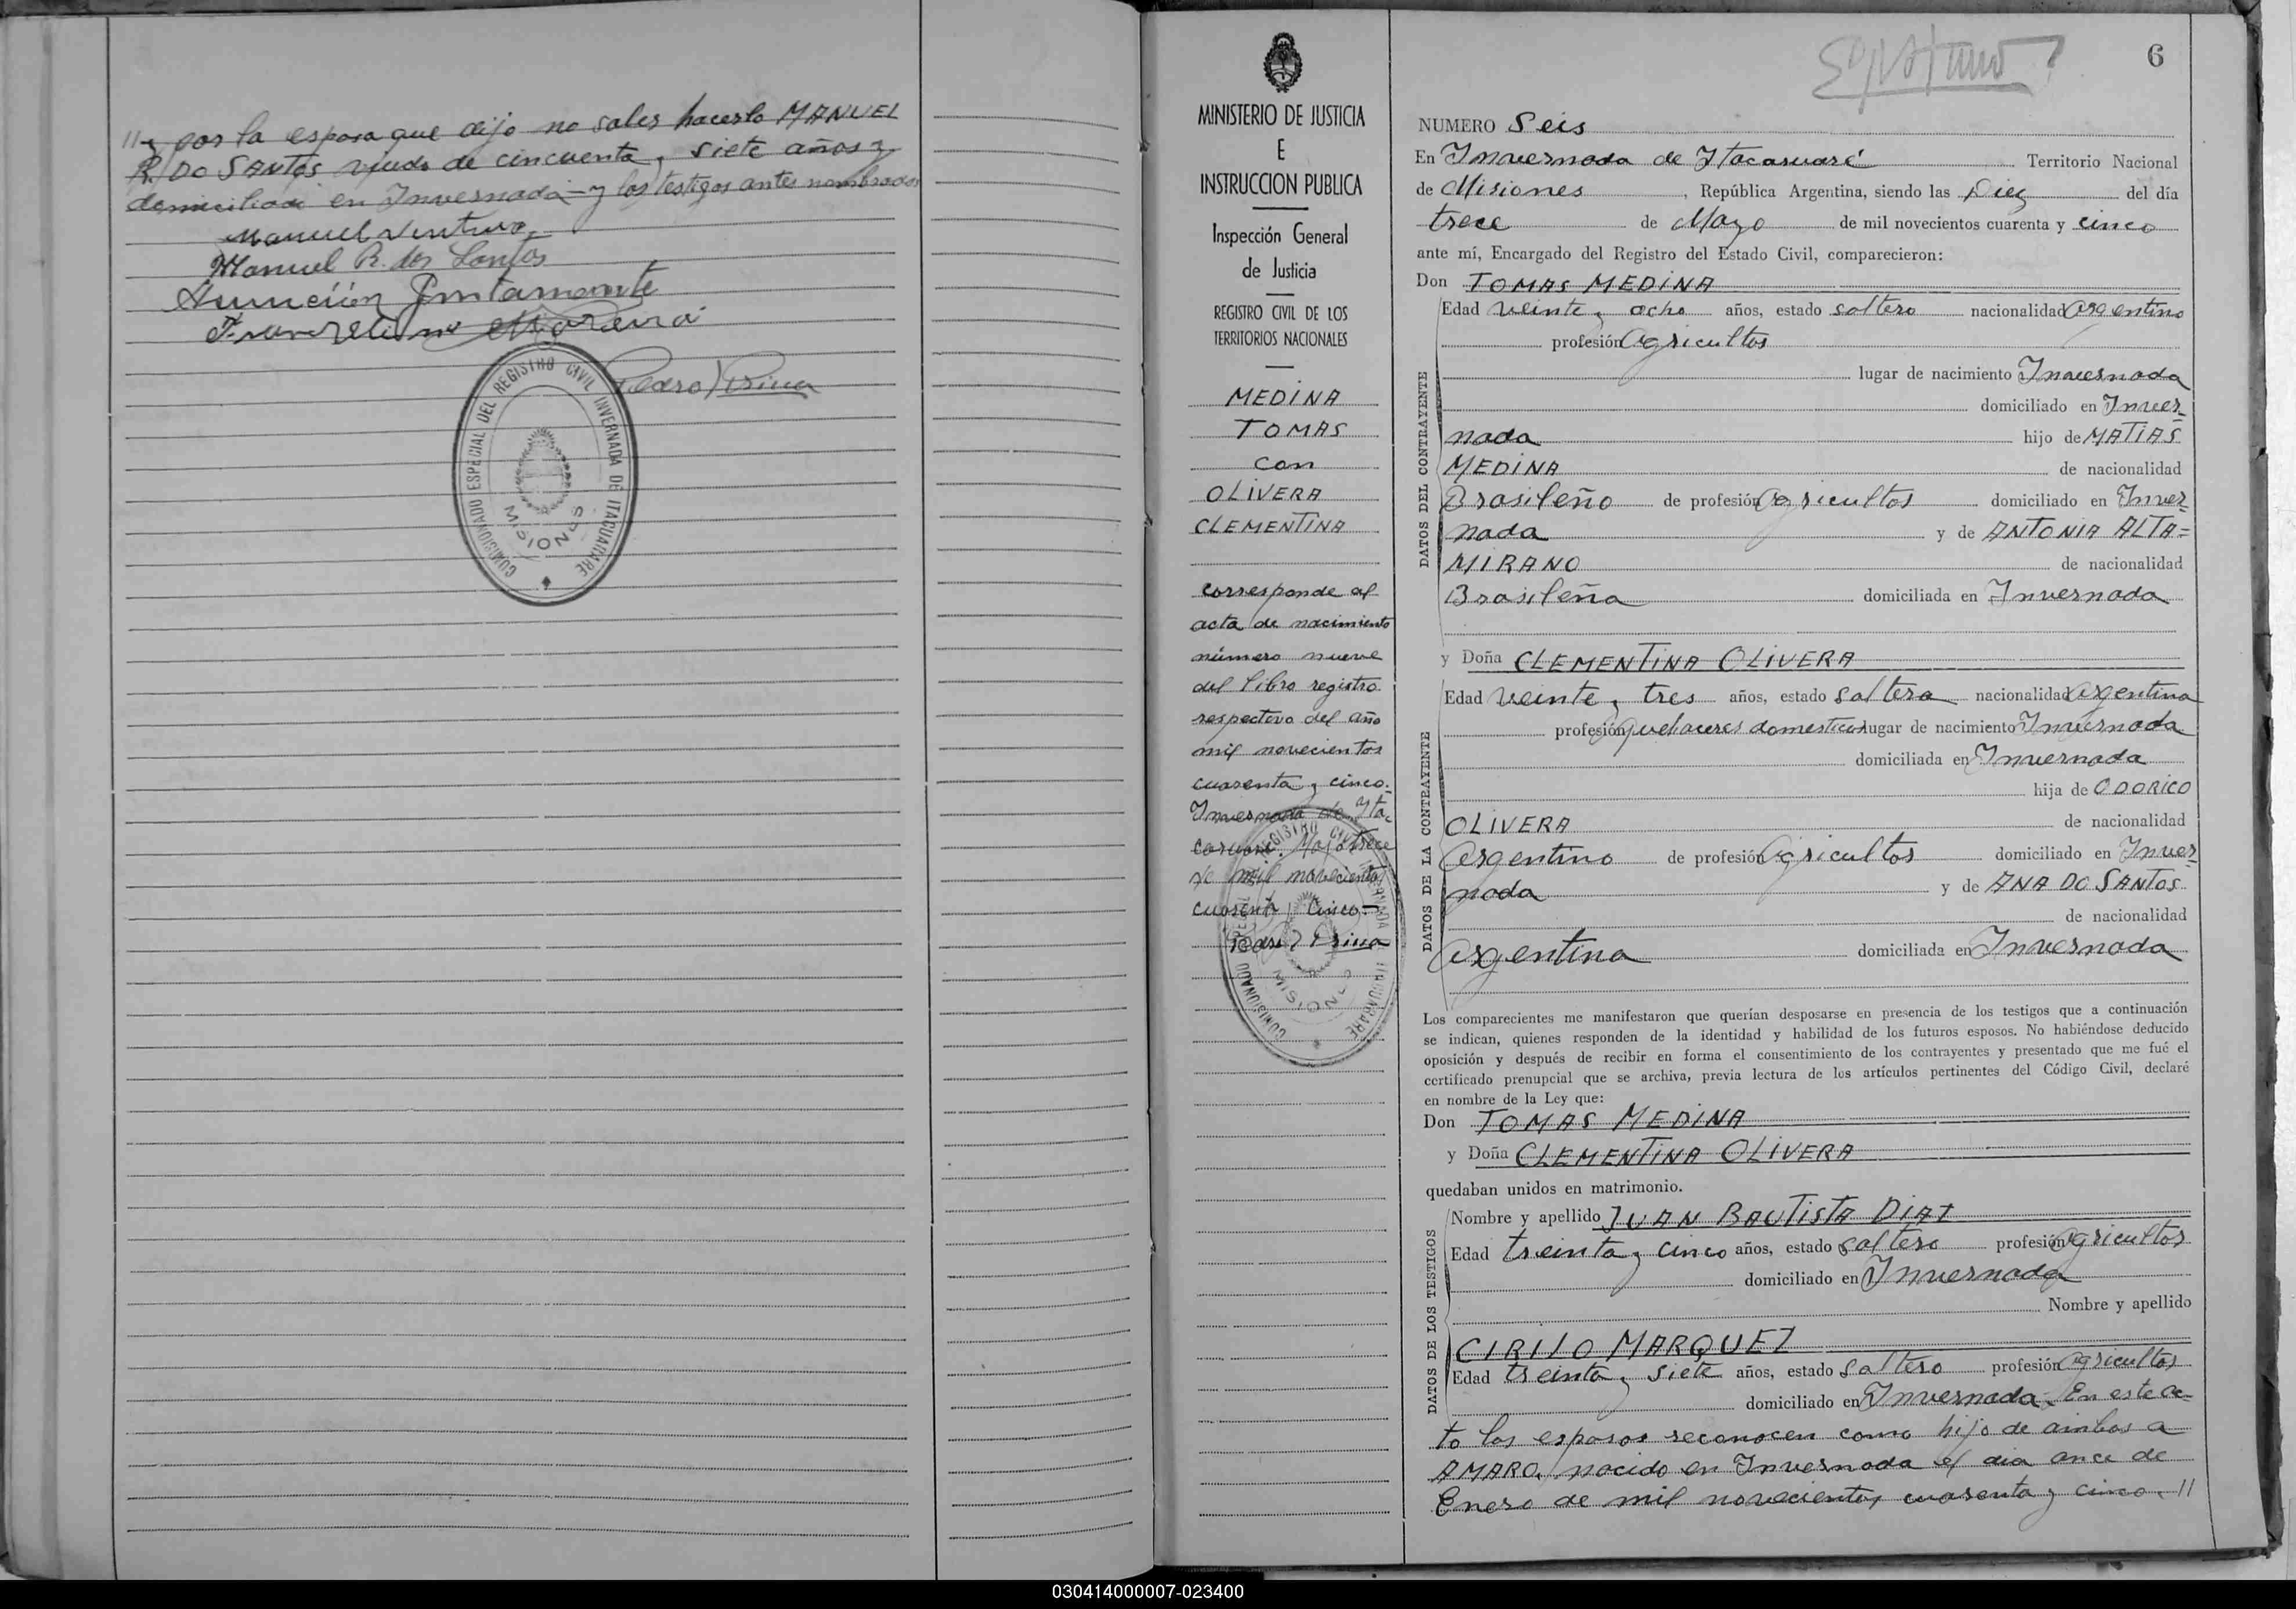 // y por la esposa que dijo no saber hacerlo MANUEL
R. DO SANTOS viudo de cincuenta y siete años y
domiciliado en Invernada y los testigos antes nombrados
Manuel Ventura
Manuel R. dos Santos
REGISTRO CIVIL INVERNADA DE ITACUARARE
COMISIONADO ESPECIAL DEL
MISIONES
6
MINISTERIO DE JUSTICIA
E
INSTRUCCION PUBLICA
Inspección General
de Justicia
REGISTRO CIVIL DE LOS
TERRITORIOS NACIONALES
MEDINA
TOMAS
con
OLIVERA
CLEMENTINA
corresponde al
acta de nacimiento
número nueve
del libro registro
respectivo del año
mil novecientos
cuarenta y cinco.
Invernada de Ita-
caruaré. Mayo trece
de mil novecientos
cuarenta y cinco.-
NUMERO Seis
En Invernada de Itacaruaré Territorio Nacional
de Misiones, República Argentina, siendo las Diez del día
trece de Mayo de mil novecientos cuarenta y cinco
ante mí, Encargado del Registro del Estado Civil, comparecieron:
Don TOMAS MEDINA
DATOS DEL CONTRAYENTE
Edad veinte y ocho años, estado soltero nacionalidad Argentino
profesión Agricultor
lugar de nacimiento Invernada
domiciliado en Inver-
nada hijo de MATIAS
MEDINA de nacionalidad
Brasileño de profesión Agricultor domiciliado en Inver-
nada y de ANTONIA ALTA=
MIRANO de nacionalidad
Brasileña domiciliada en Invernada
y Doña CLEMENTINA OLIVERA
DATOS DE LA CONTRAYENTE
Edad veinte y tres años, estado soltera nacionalidad Argentina
profesión quehaceres domesticos lugar de nacimiento Invernada
domiciliada en Invernada
hija de ODORICO
OLIVERA de nacionalidad
Argentino de profesión Agricultor domiciliado en Inver-
nada y de ANA DO SANTOS
de nacionalidad
Argentina domiciliada en Invernada
Los comparecientes me manifestaron que querían desposarse en presencia de los testigos que a continuación
se indican, quienes responden de la identidad y habilidad de los futuros esposos. No habiéndose deducido
oposición y después de recibir en forma el consentimiento de los contrayentes y presentado que me fué el
certificado prenupcial que se archiva, previa lectura de los artículos pertinentes del Código Civil, declaré
en nombre de la Ley que:
Don TOMAS MEDINA
y Doña CLEMENTINA OLIVERA
quedaban unidos en matrimonio.
DATOS DE LOS TESTIGOS
Nombre y apellido JUAN BAUTISTA DIAZ
Edad treinta y cinco años, estado soltero profesión Agricultor
domiciliado en Invernada
Nombre y apellido
CIRILO MARQUEZ
Edad treinta y siete años, estado soltero profesión Agricultor
domiciliado en Invernada. En este ac-
to los esposos reconocen como hijo de ambos a
AMARO, nacido en Invernada el dia once de
Enero de mil novecientos cuarenta y cinco. //
030414000007-023400